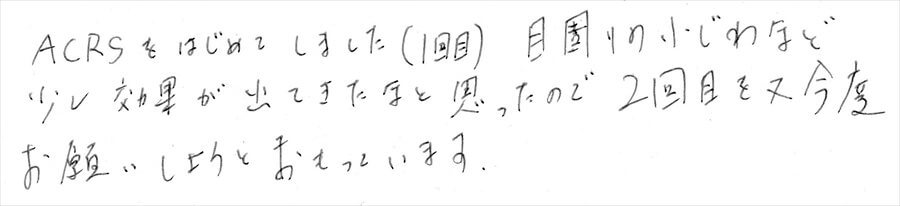 ACRSをはじめてしました(1回目) 目周りの小じわなど
少し効果が出てきたなと思ったので2回目を又今度
お願いしようとおもっています.